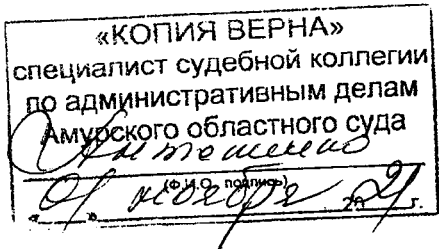 «КОПИЯ ВЕРНА»
специалист судебной коллегии
по административным делам
Амурского областного суда
(Ф.И.О., подпись)
« 01 » ноября 2021 г.